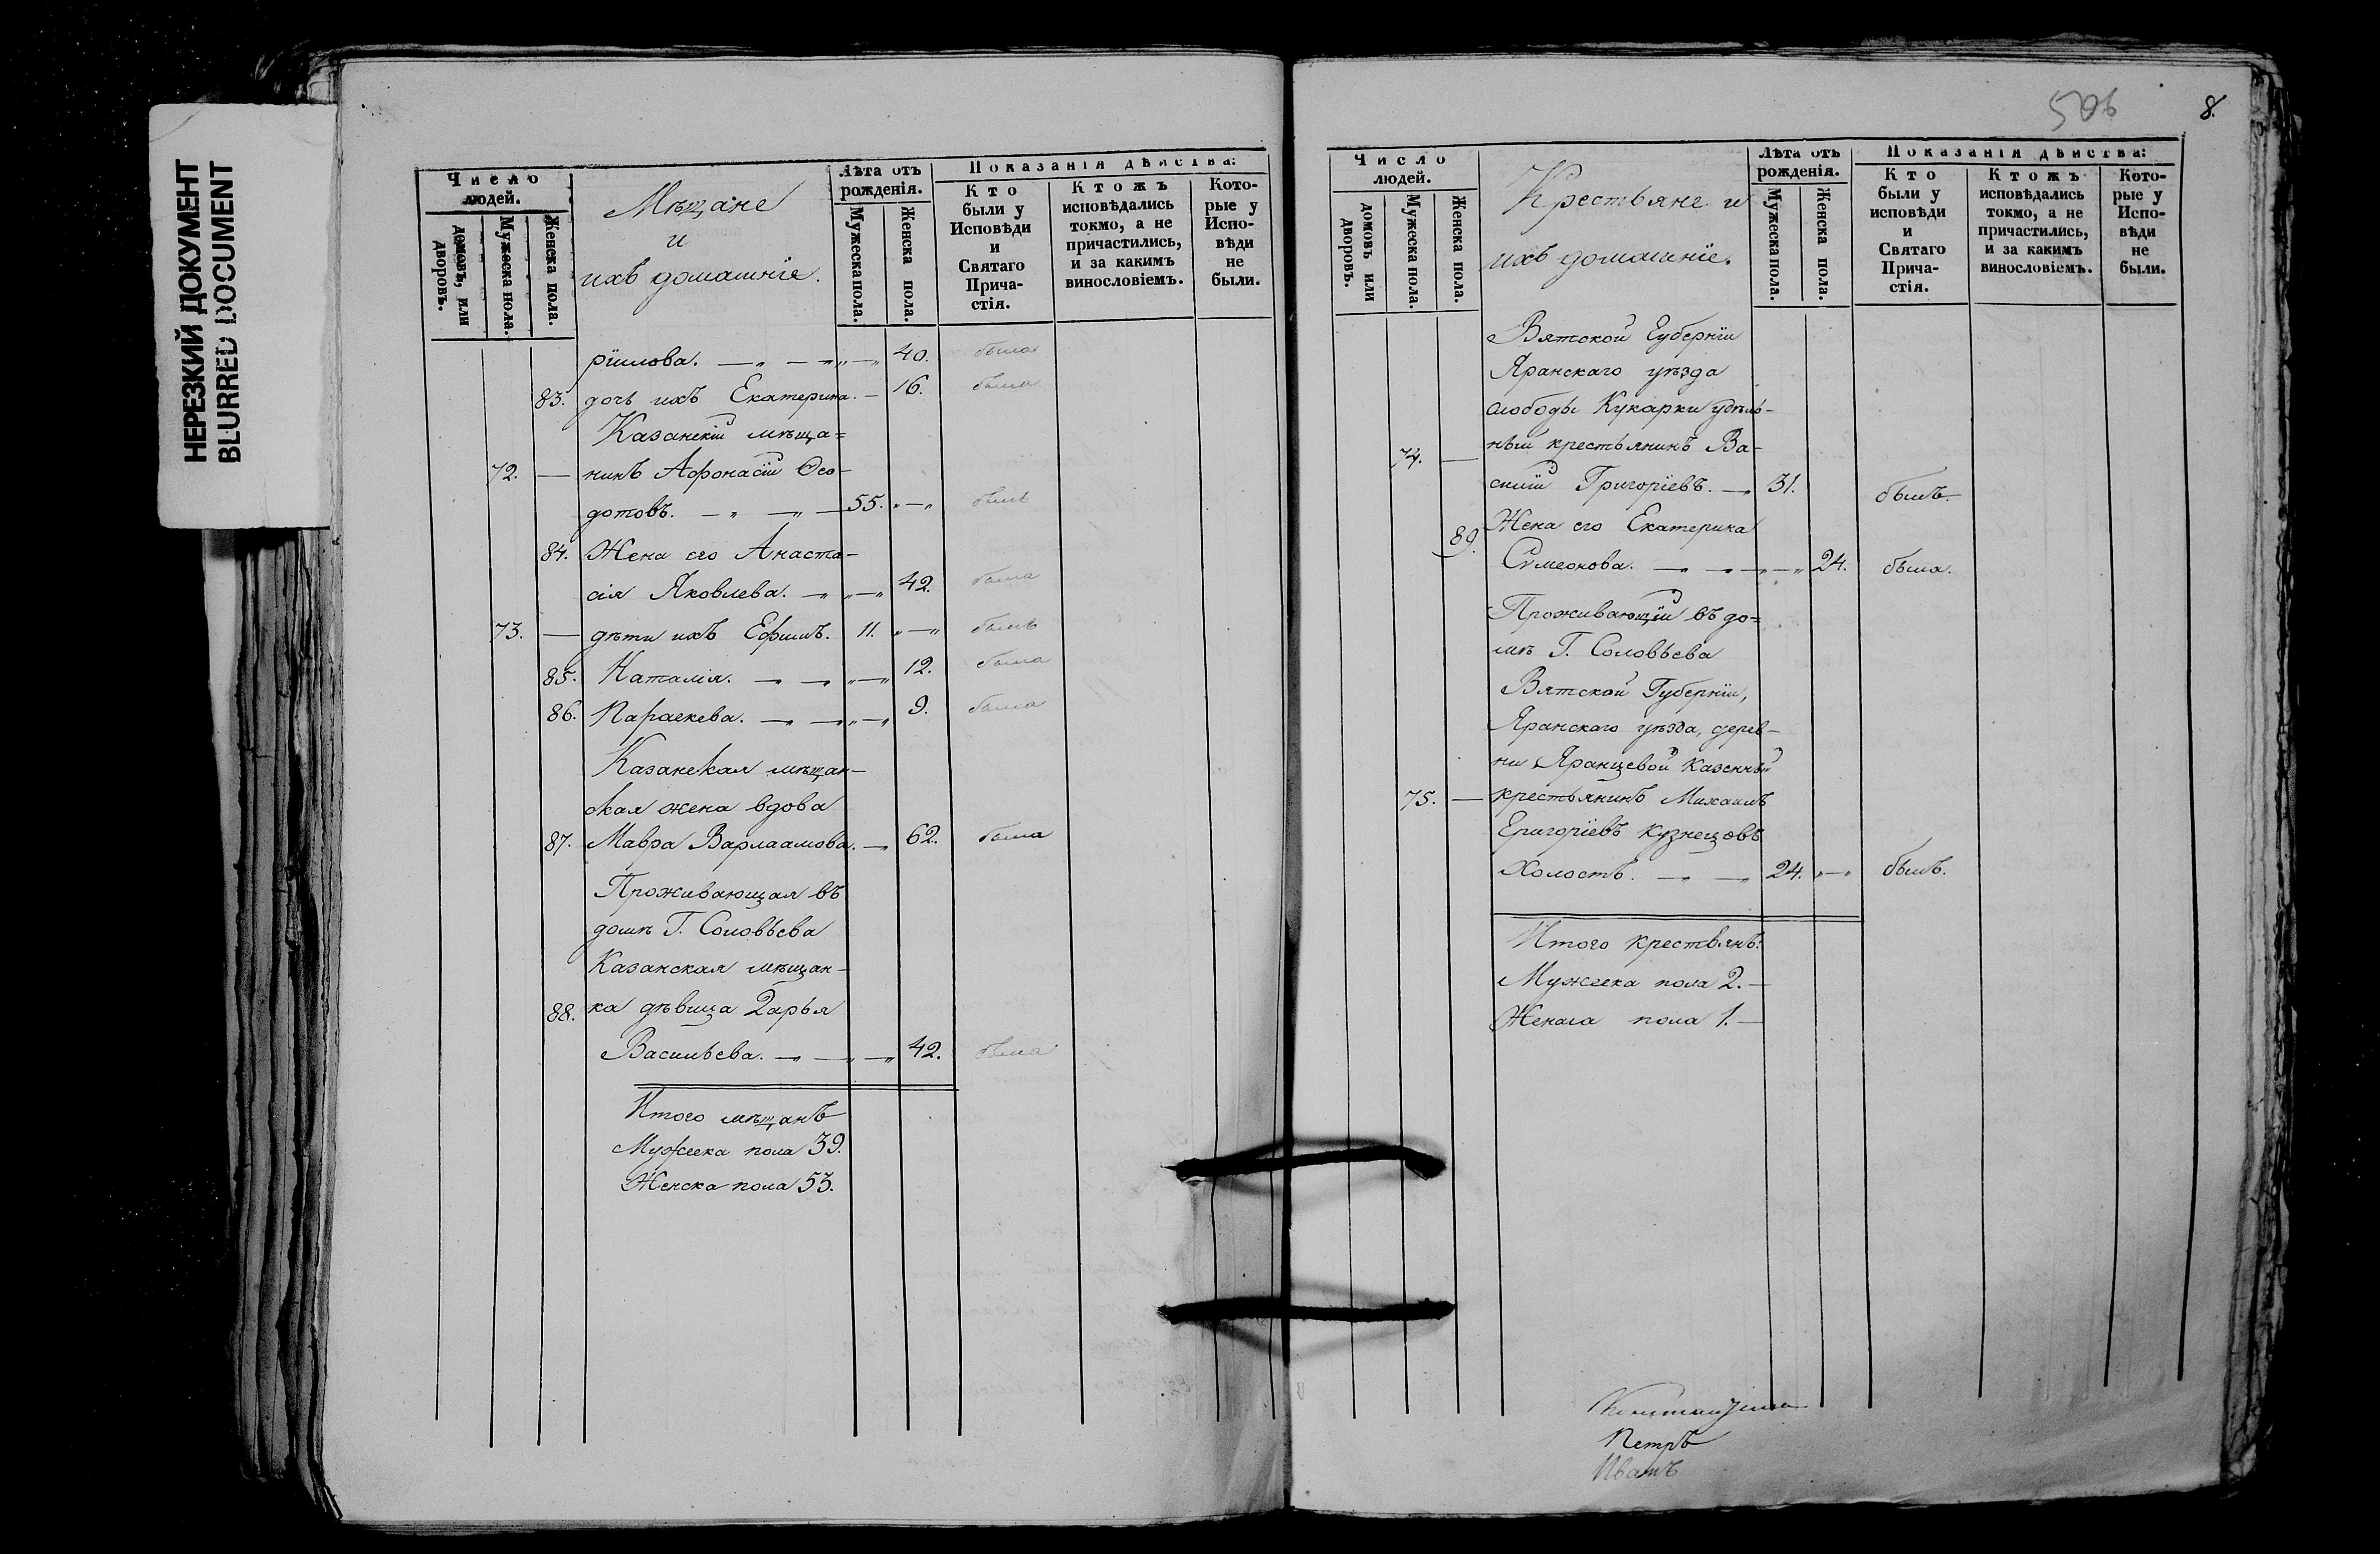 НЕРЕЗКИЙ ДОКУМЕНТ
BLURRED DOCUMENT
Число людей.
домовъ, или дворовъ.
Мужеска пола.
Женска пола.
Мѣщане
и
ихъ домашніе.
Лѣта отъ рожденія.
Мужеска пола.
Женска пола.
Показанія дѣйства:
Кто были у Исповѣди и Святаго Причастія.
Ктожъ исповѣдались токмо, а не причастились, и за какимъ винословіемъ.
Которые у Исповѣди не были.
рїилова. 40. была
83. дочь ихъ Екатерина. 16. была
Казанскій мѣща=
72. — нинъ Афонасій Ѳео-
дотовъ. 55. былъ
84. Жена его Анаста-
сія Яковлева. 42. была
73. — дѣти ихъ Ефимъ. 11. былъ
85. Наталія. 12. была
86. Параскева. 9. была
Казанская мѣщан-
ская жена вдова
87. Мавра Варлаамова. 62. была
Проживающая въ
домѣ Г. Соловьева
Казанская мѣщан-
88. ка дѣвица Дарья
Васильева. 42. была
Итого мѣщанъ
Мужеска пола 39.
Женска пола 53.
506
8.
Число людей.
домовъ или дворовъ.
Мужеска пола.
Женска пола.
Крестьяне и
ихъ домашніе.
Лѣта отъ рожденія.
Мужеска пола.
Женска пола.
Показанія дѣйства:
Кто были у исповѣди и Святаго Причастія.
Ктожъ исповѣдались токмо, а не причастились, и за какимъ винословіемъ.
Которые у Исповѣди не были.
Вятской Губерніи
Яранскаго уѣзда
слободы Кукарки удѣль-
74. — ный крестьянинъ Ва-
силій Григорїевъ. 31. былъ.
89. Жена его Екатерина
Сѵмеонова. 24. была.
Проживающїй въ до=
мѣ Г. Соловьева
Вятской Губерніи,
Яранскаго уѣзда, дерев-
ни Яранцевой казенный
75. — крестьянинъ Михаилъ
Григорїевъ Кузнецовъ
Холостъ. 24. былъ.
Итого крестьянъ:
Мужеска пола 2. —
Женска пола 1. —
Петръ
Иванъ